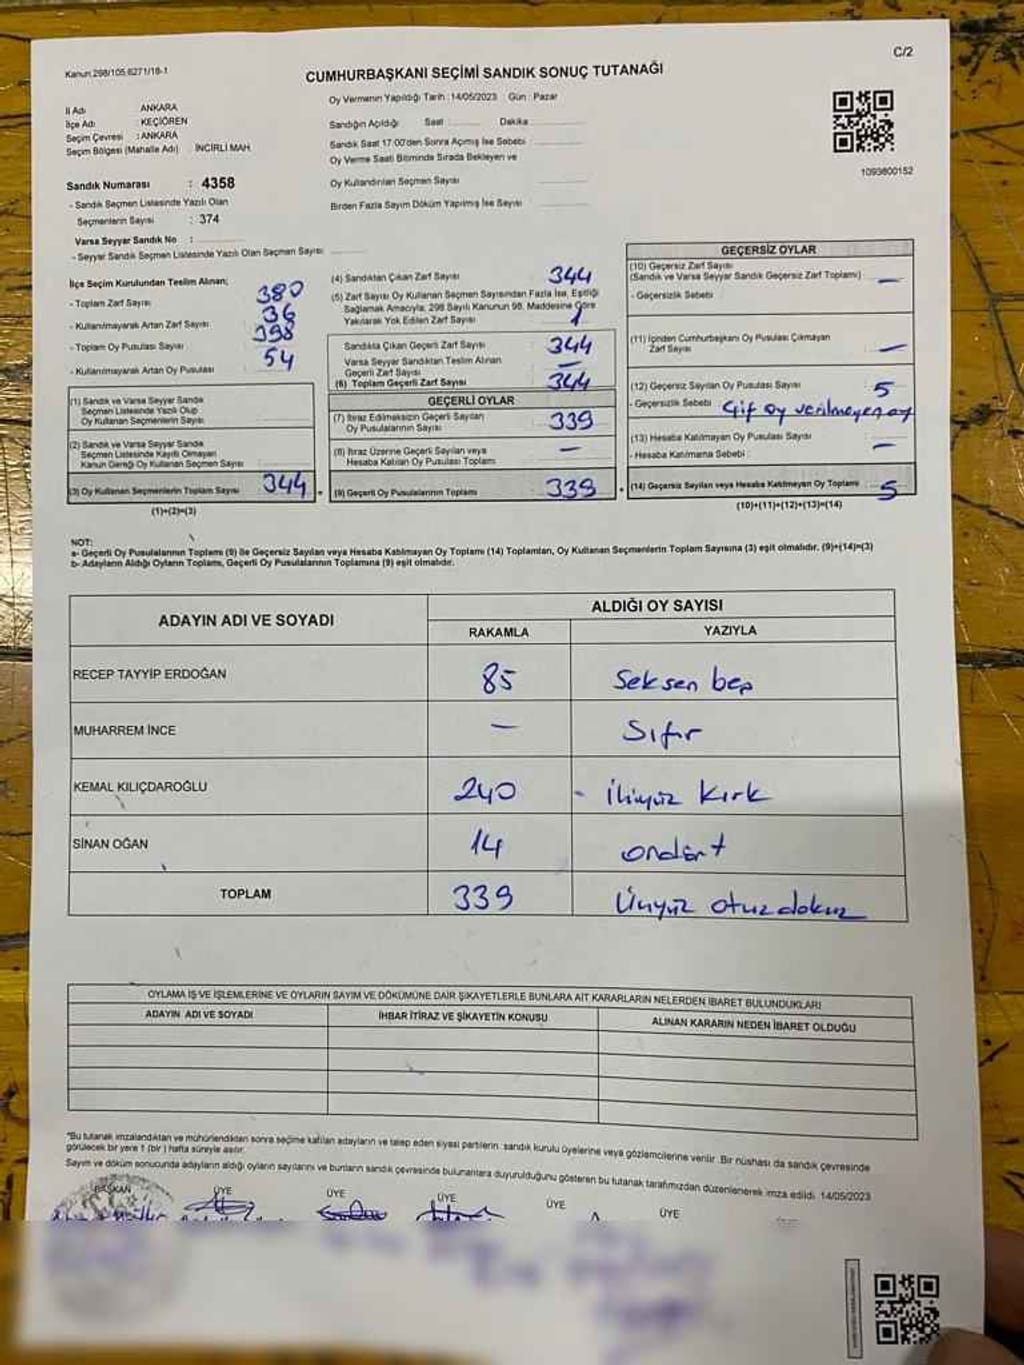 C/2
Kanun:298/105,6271/18-1
CUMHURBAŞKANI SEÇİMİ SANDIK SONUÇ TUTANAĞI
Oy Vermenin Yapıldığı Tarih : 14/05/2023 Gün : Pazar
İl Adı ANKARA
İlçe Adı : KEÇİÖREN
Seçim Çevresi : ANKARA
Seçim Bölgesi (Mahalle Adı) İNCİRLİ MAH.
Sandığın Açıldığı Saat : Dakika
Sandık Saat 17:00'den Sonra Açımış İse Sebebi
Oy Verme Saati Bitiminde Sırada Bekleyen ve
Oy Kullandırılan Seçmen Sayısı
Birden Fazla Sayım Döküm Yapılmış İse Sayısı
1093800152
Sandık Numarası : 4358
- Sandık Seçmen Listesinde Yazılı Olan
Seçmenlerin Sayısı : 374
Varsa Seyyar Sandık No :
- Seyyar Sandık Seçmen Listesinde Yazılı Olan Seçmen Sayısı
İlçe Seçim Kurulundan Teslim Alınan;
- Toplam Zarf Sayısı 380
- Kullanılmayarak Artan Zarf Sayısı 36
- Toplam Oy Pusulası Sayısı 398
- Kullanılmayarak Artan Oy Pusulası 54
(1) Sandık ve Varsa Seyyar Sandık
Seçmen Listesinde Yazılı Olup
Oy Kullanan Seçmenlerin Sayısı
(2) Sandık ve Varsa Seyyar Sandık
Seçmen Listesinde Kayıtlı Olmayan
Kanun Gereği Oy Kullanan Seçmen Sayısı
(3) Oy Kullanan Seçmenlerin Toplam Sayısı 344
(1)+(2)=(3)
(4) Sandıktan Çıkan Zarf Sayısı 344
(5) Zarf Sayısı Oy Kullanan Seçmen Sayısından Fazla İse, Eşitliği
Sağlamak Amacıyla, 298 Sayılı Kanunun 98. Maddesine Göre
Yakılarak Yok Edilen Zarf Sayısı
Sandıkta Çıkan Geçerli Zarf Sayısı 344
Varsa Seyyar Sandıktan Teslim Alınan
Geçerli Zarf Sayısı —
(6) Toplam Geçerli Zarf Sayısı 344
GEÇERLİ OYLAR
(7) İtiraz Edilmeksizin Geçerli Sayılan
Oy Pusulalarının Sayısı 339
(8) İtiraz Üzerine Geçerli Sayılan veya
Hesaba Katılan Oy Pusulası Toplamı —
(9) Geçerli Oy Pusulalarının Toplamı 339
GEÇERSİZ OYLAR
(10) Geçersiz Zarf Sayısı
(Sandık ve Varsa Seyyar Sandık Geçersiz Zarf Toplamı) —
- Geçersizlik Sebebi
(11) İçinden Cumhurbaşkanı Oy Pusulası Çıkmayan
Zarf Sayısı —
(12) Geçersiz Sayılan Oy Pusulası Sayısı 5
- Geçersizlik Sebebi Çift oy verilmeyen oy
(13) Hesaba Katılmayan Oy Pusulası Sayısı —
- Hesaba Katılmama Sebebi
(14) Geçersiz Sayılan veya Hesaba Katılmayan Oy Toplamı 5
(10)+(11)+(12)+(13)=(14)
NOT:
a- Geçerli Oy Pusulalarının Toplamı (9) ile Geçersiz Sayılan veya Hesaba Katılmayan Oy Toplamı (14) Toplamları, Oy Kullanan Seçmenlerin Toplam Sayısına (3) eşit olmalıdır. (9)+(14)=(3)
b- Adayların Aldığı Oyların Toplamı, Geçerli Oy Pusulalarının Toplamına (9) eşit olmalıdır.
ADAYIN ADI VE SOYADI ALDIĞI OY SAYISI
RAKAMLA YAZIYLA
RECEP TAYYİP ERDOĞAN 85 Seksen beş
MUHARREM İNCE — Sıfır
KEMAL KILIÇDAROĞLU 240 - ikiyüz kırk
SİNAN OĞAN 14 ondört
TOPLAM 339 Üçyüz otuzdokuz
OYLAMA İŞ VE İŞLEMLERİNE VE OYLARIN SAYIM VE DÖKÜMÜNE DAİR ŞİKAYETLERLE BUNLARA AİT KARARLARIN NELERDEN İBARET BULUNDUKLARI
ADAYIN ADI VE SOYADI İHBAR İTİRAZ VE ŞİKAYETİN KONUSU ALINAN KARARIN NEDEN İBARET OLDUĞU
"Bu tutanak imzalandıktan ve mühürlendikten sonra seçime katılan adayların ve talep eden siyasi partilerin sandık kurulu üyelerine veya gözlemcilerine verilir. Bir nüshası da sandık çevresinde
görülecek bir yere 1 (bir) hafta süreyle asılır.
Sayım ve döküm sonucunda adayların aldığı oyların sayılarını ve bunların sandık çevresinde bulunanlara duyurulduğunu gösteren bu tutanak tarafımızdan düzenlenerek imza edildi. 14/05/2023
BAŞKAN ÜYE ÜYE ÜYE ÜYE ÜYE